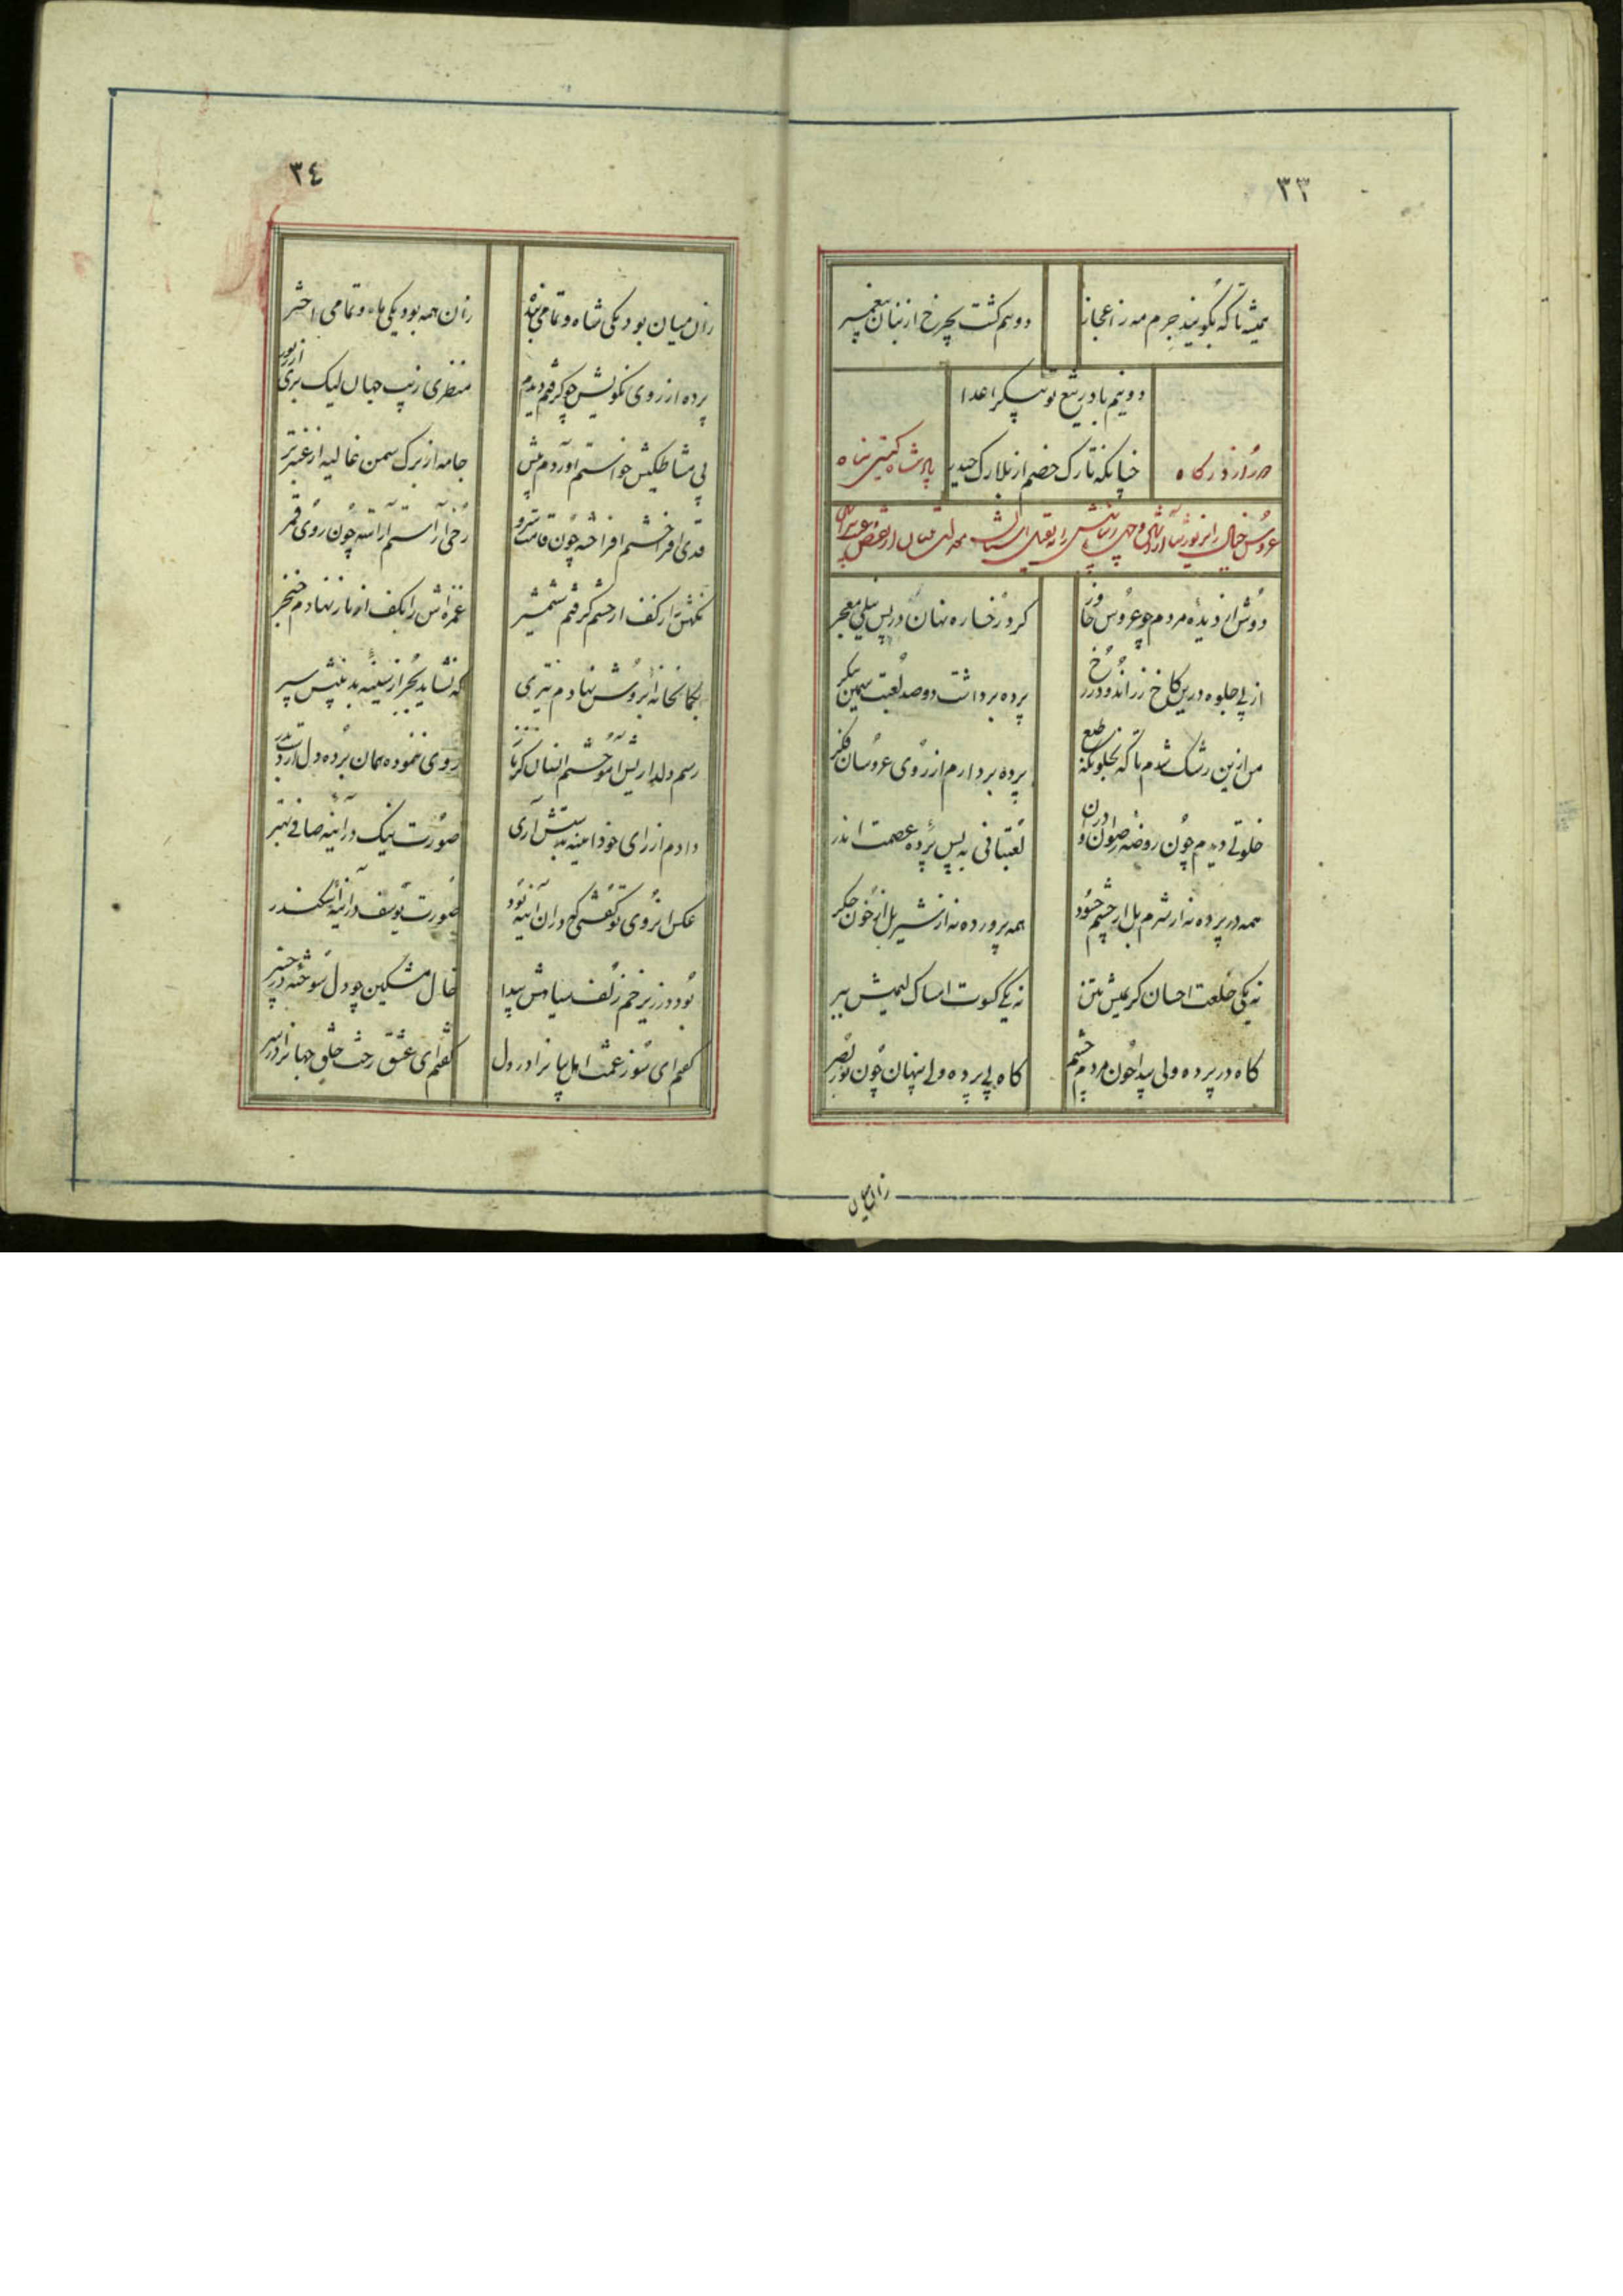 ٣٣
همیشه تا که بگویند جرم مه ز اعجاز
دو نیم کشت بچرخ از بنان پیغمبر
دو نیم باد ز تیغ تو پیکر اعدا
چنانکه تارک خصم از بلارک حیدر
در درگاه
پادشاه گیتی پناه
عروس خیال را
دوش از دیدهٔ مردم چو عروس خاور
کرد رخساره نهان در پس نیلی معجر
از پی جلوه درین کاخ زر اندود ز رخ
پرده برداشت دو صد لعبت سیمین پیکر
من ازین رشک شدم تا که بخلوتکه طبع
پرده بردارم از روی عروسان فکر
خلوتی دیدم چون روضهٔ رضوان و دران
لعبتانی به پس پردهٔ عصمت اندر
همه در پرده نه از شرم بل از چشم حسود
همه پرورده نه از شیر بل از خون جکر
نه یکی خلعت احسان کریمیش بتن
نه یکی کسوت امساک لئیمیش ببر
کاه در پرده ولی پیدا چون مردم چشم
کاه بی پرده ولی پنهان چون نور بصر
زان میان
٣٤
زان میان بود یکی شاه و تمامی بنده
زان همه بود یکی ماه و تمامی اختر
پرده از روی نکویش چو کرفتم دیدم
منظری زیب جهان لیک بری از زیور
پی مشاطکیش خواستم آوردم پیش
جامه از برک سمن غالیه از عنبر تر
قدی افراختم افراخته چون قامت سرو
رخی آراستم آراسته چون روی قمر
نکهش را بکف از خشم کرفتم شمشیر
غمزه‌اش را بکف از ناز نهادم خنجر
بکمانخانهٔ ابروش نهادم تیری
که نشاید بجز از سینه بدپیش سپر
رسم دلداریش آموختم انسان کز ناز
روی ننموده همان برده دل از دست پدر
دادم از رای خود آیینه بدستش آری
صورت نیک در آینه صافی بهتر
عکس از روی تو کفتی که در آن آینه بود
صورت یوسف در آینهٔ اسکندر
بود در زیر خم زلف سیاهش پیدا
خال مشکین چو دل سوخته در چنبر
کفتم ای سوز غمت اهل جهانرا در دل
کفتم ای عشق رخت خلق جهانرا در سر